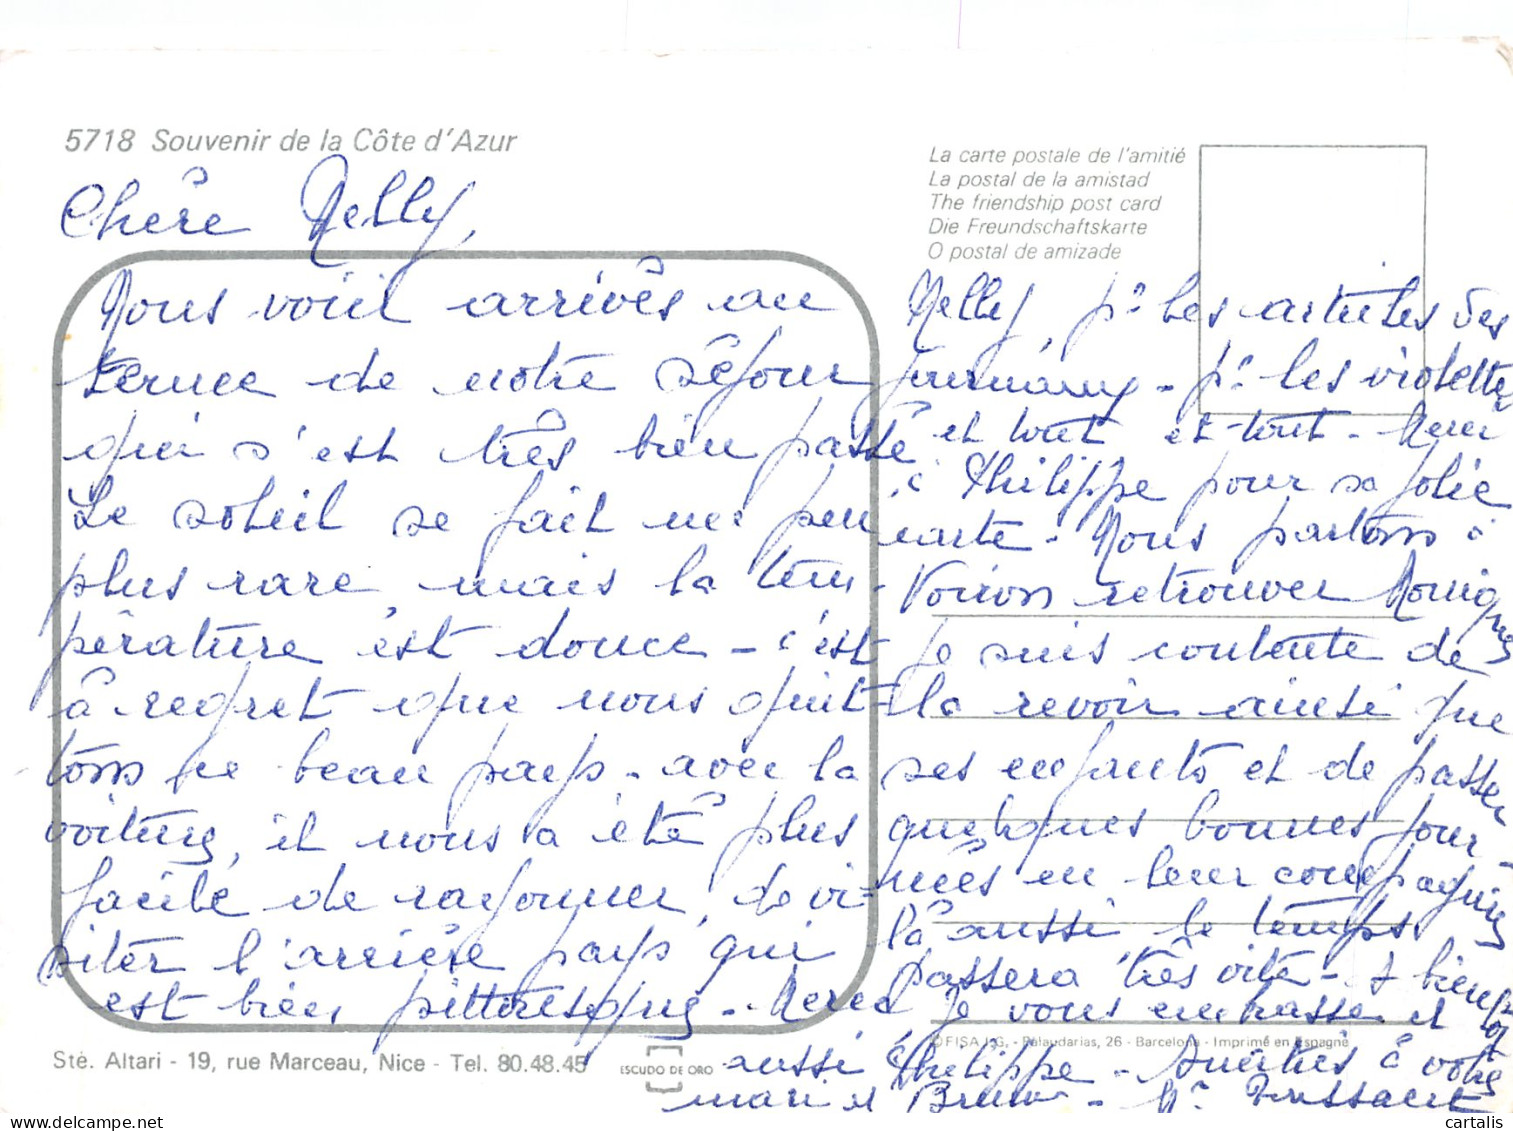 5718 Souvenir de la Côte d'Azur
Chère Nelly,
Nous voici arrivés au
terme de notre séjour
qui s'est très bien passé
Le soleil se fait un peu
plus rare, mais la tem-
pérature est douce - c'est
à regret que nous quit-
tons ce beau pays - avec la
voiture, il nous a été plus
facile de rayonner, de vi-
siter l'arrière pays qui
est bien pittoresque - Merci
La carte postale de l'amitié
La postal de la amistad
The friendship post card
Die Freundschaftskarte
O postal de amizade
Nelly, pr les articles des
journaux - pr les violettes
et tout et tout - Merci
à Philippe pour sa jolie
carte - Nous partons à
Voiron retrouver Monique
je suis contente de
la revoir ainsi que
ses enfants et de passer
quelques bonnes jour-
nées en leur compagnie
là aussi le temps
passera très vite - A bientôt
je vous embrasse et
aussi Philippe - Amitiés à votre
mari et Bruno - Toussaint
Sté. Altari - 19, rue Marceau, Nice - Tel. 80.48.45
ESCUDO DE ORO
© FISA I.G. - Palaudarias, 26 - Barcelona - Imprimé en Espagne
cartalis